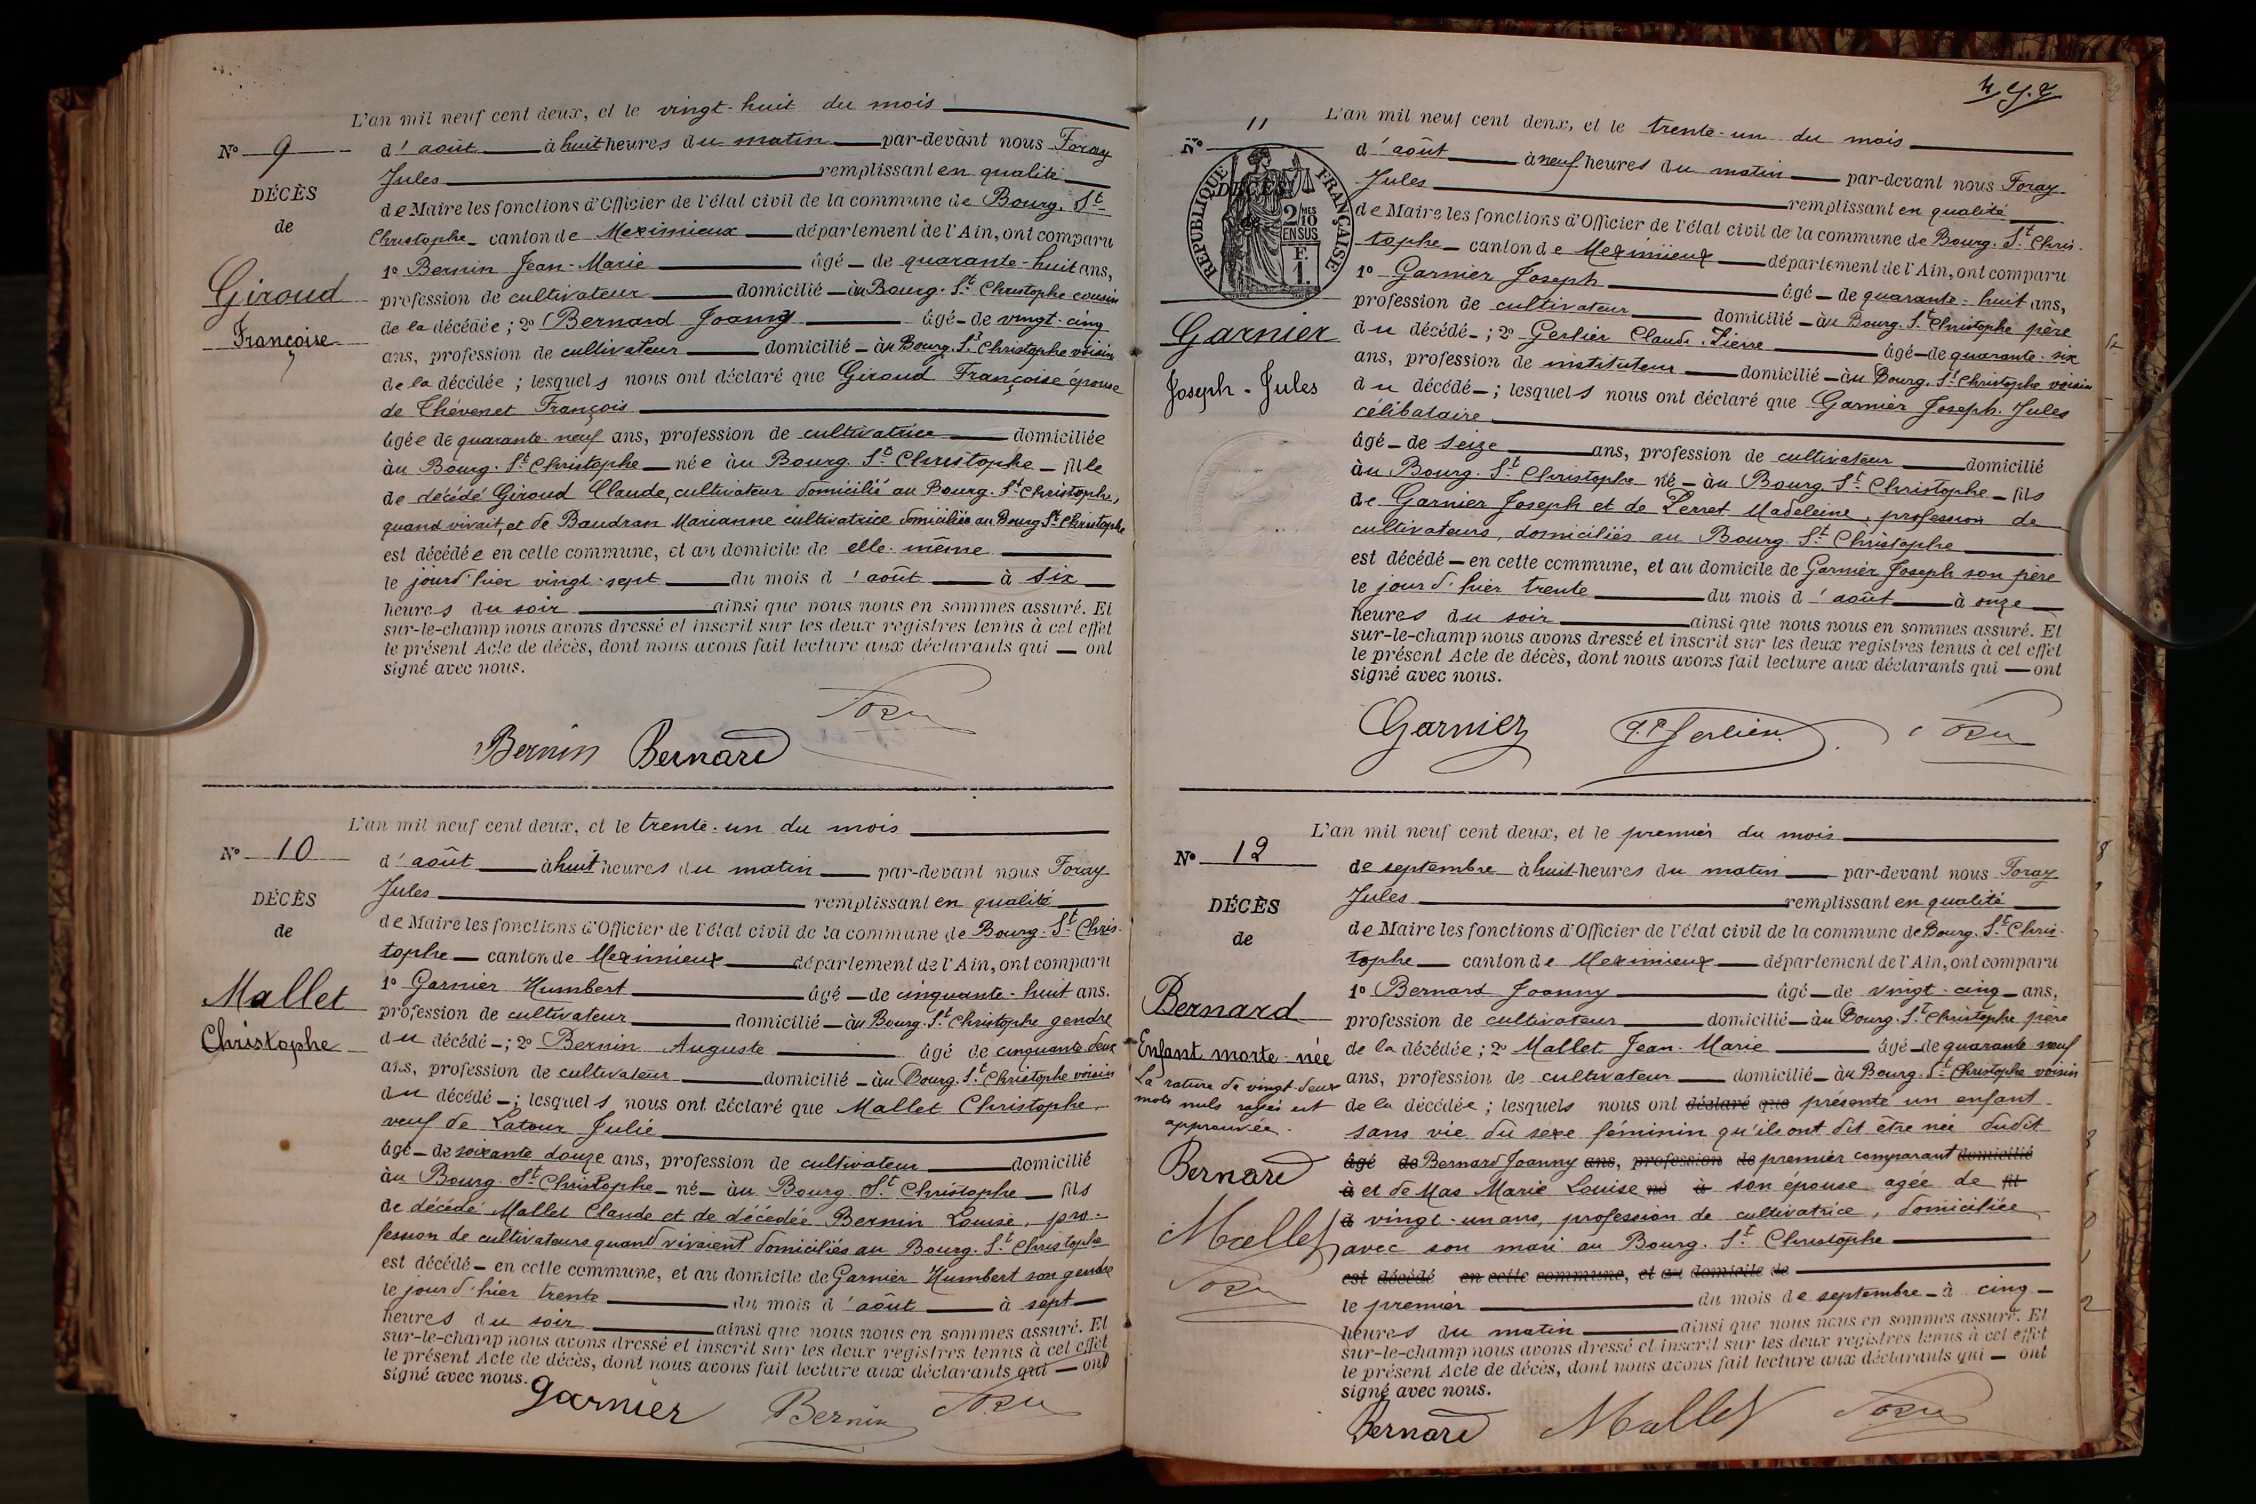 L'an mil neuf cent deux, et le vingt-huit du mois
No 9
d'août à huit heures du matin par-devant nous Foray
Jules remplissant en qualité
DÉCÈS
de Maire les fonctions d'Officier de l'état civil de la commune de Bourg. St
de
Christophe canton de Meximieux département de l'Ain, ont comparu
1o Bernin Jean-Marie âgé de quarante-huit ans,
Giroud
profession de cultivateur domicilié au Bourg. St Christophe cousin
de la décédée ; 2o Bernard Joanny âgé de vingt-cinq
Françoise
ans, profession de cultivateur domicilié au Bourg. St Christophe voisin
de la décédée ; lesquels nous ont déclaré que Giroud Françoise épouse
de Thévenet François
âgée de quarante-neuf ans, profession de cultivatrice domiciliée
au Bourg. St Christophe née au Bourg. St Christophe fille
de décédé Giroud Claude, cultivateur domicilié au Bourg. St Christophe,
quand vivait, et de Baudran Marianne cultivatrice domiciliée au Bourg St Christophe
est décédée en cette commune, et au domicile de elle-même
le jour d'hier vingt-sept du mois d'août à six
heures du soir ainsi que nous nous en sommes assuré. Et
sur-le-champ nous avons dressé et inscrit sur les deux registres tenus à cet effet
le présent Acte de décès, dont nous avons fait lecture aux déclarants qui ont
signé avec nous.
Bernin Bernard
L'an mil neuf cent deux, et le trente-un du mois
No 10
d'août à huit heures du matin par-devant nous Foray
Jules remplissant en qualité
DÉCÈS
de Maire les fonctions d'Officier de l'état civil de la commune de Bourg. St Chris-
de
tophe canton de Meximieux département de l'Ain, ont comparu
1o Garnier Humbert âgé de cinquante-huit ans.
Mallet
profession de cultivateur domicilié au Bourg. St Christophe gendre
Christophe
du décédé ; 2o Bernin Auguste âgé de cinquante deux
ans, profession de cultivateur domicilié au Bourg. St Christophe voisin
du décédé ; lesquels nous ont déclaré que Mallet Christophe,
veuf de Latour Julie
âgé de soixante douze ans, profession de cultivateur domicilié
au Bourg. St Christophe né au Bourg. St Christophe fils
de décédé Mallet Claude et de décédée Bernin Louise, pro-
fession de cultivateurs quand vivaient domiciliés au Bourg. St Christophe
est décédé en cette commune, et au domicile de Garnier Humbert son gendre
le jour d'hier trente du mois d'août à sept
heures du soir ainsi que nous nous en sommes assuré. Et
sur-le-champ nous avons dressé et inscrit sur les deux registres tenus à cet effet
le présent Acte de décès, dont nous avons fait lecture aux déclarants qui ont
signé avec nous.
Garnier Bernin
L'an mil neuf cent deux, et le trente-un du mois
No 11
d'août à neuf heures du matin par-devant nous Foray
RÉPUBLIQUE FRANÇAISE
2/10MES
EN SUS
F.
1.
DÉCÈS
Jules remplissant en qualité
de Maire les fonctions d'Officier de l'état civil de la commune de Bourg. St Chris-
tophe canton de Meximieux département de l'Ain, ont comparu
1o Garnier Joseph âgé de quarante-huit ans,
profession de cultivateur domicilié au Bourg. St Christophe père
Garnier
du décédé ; 2o Gerlier Claude-Pierre âgé de quarante-six
Joseph-Jules
ans, profession de instituteur domicilié au Bourg. St Christophe voisin
du décédé ; lesquels nous ont déclaré que Garnier Joseph-Jules
célibataire
âgé de seize ans, profession de cultivateur domicilié
au Bourg. St Christophe né au Bourg. St Christophe fils
de Garnier Joseph et de Perret Madeleine, profession de
cultivateurs, domiciliés au Bourg. St Christophe
est décédé en cette commune, et au domicile de Garnier Joseph son père
le jour d'hier trente du mois d'août à onze
heures du soir ainsi que nous nous en sommes assuré. Et
sur-le-champ nous avons dressé et inscrit sur les deux registres tenus à cet effet
le présent Acte de décès, dont nous avons fait lecture aux déclarants qui ont
signé avec nous.
Garnier C.P. Gerlier
L'an mil neuf cent deux, et le premier du mois
No 12
de septembre à huit heures du matin par-devant nous Foray
Jules remplissant en qualité
DÉCÈS
de Maire les fonctions d'Officier de l'état civil de la commune de Bourg. St Chris-
de
tophe canton de Meximieux département de l'Ain, ont comparu
1o Bernard Joanny âgé de vingt-cinq ans,
Bernard
profession de cultivateur domicilié au Bourg. St Christophe père
Enfant morte-née
de la décédée ; 2o Mallet Jean-Marie âgé de quarante neuf
La rature de vingt-deux
mots nuls rayés est
approuvée.
ans, profession de cultivateur domicilié au Bourg. St Christophe voisin
de la décédée ; lesquels nous ont déclaré que présenté un enfant
sans vie du sexe féminin qu'ils ont dit être née dudit
Bernard
âgé de Bernard Joanny ans, profession de premier comparant domicilié
à et de Mas Marie Louise né à son épouse agée de fil
Mallet
d vingt-un ans, profession de cultivatrice, domiciliée
avec son mari au Bourg. St Christophe
est décédé en cette commune, et au domicile de
le premier du mois de septembre à cinq
heures du matin ainsi que nous nous en sommes assuré. Et
sur-le-champ nous avons dressé et inscrit sur les deux registres tenus à cet effet
le présent Acte de décès, dont nous avons fait lecture aux déclarants qui ont
signé avec nous.
Bernard Mallet